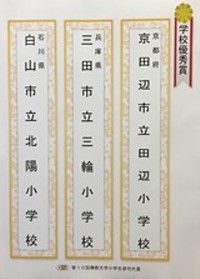 学校優秀賞
京都府
京田辺市立田辺小学校
兵庫県
三田市立三輪小学校
石川県
白山市立北陽小学校
第十回佛教大学小学生俳句大賞